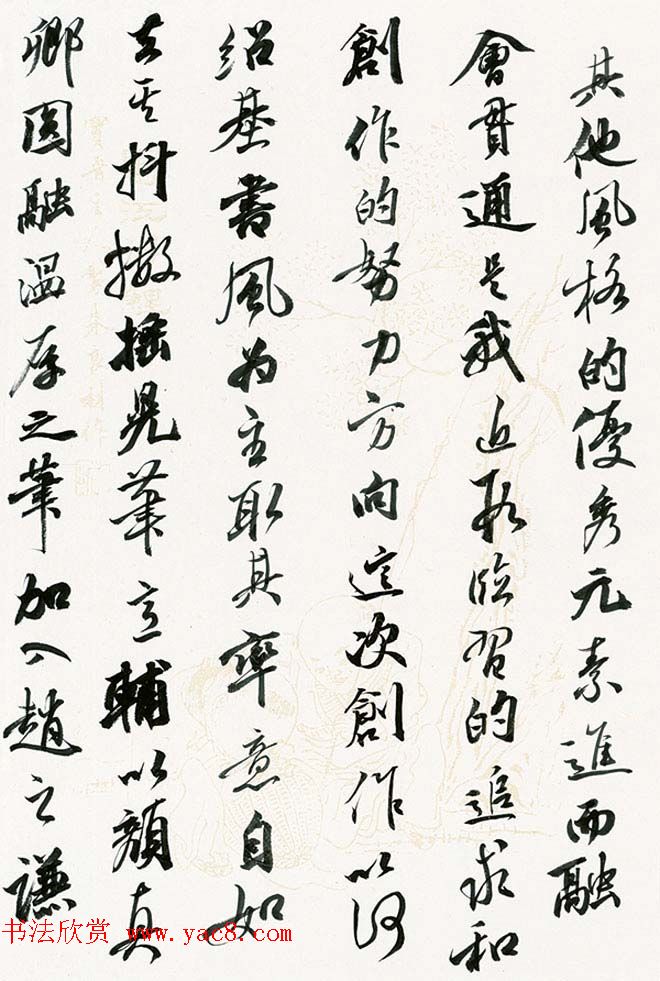 其他風格的優秀元素進而融
會貫通是我近段臨習的追求和
創作的努力方向這次創作以何
紹基書風為主取其率意自如
去其抖擻搖晃筆意輔以顏真
卿圓融溫厚之筆加入趙之謙
书法欣赏 www.yac8.com